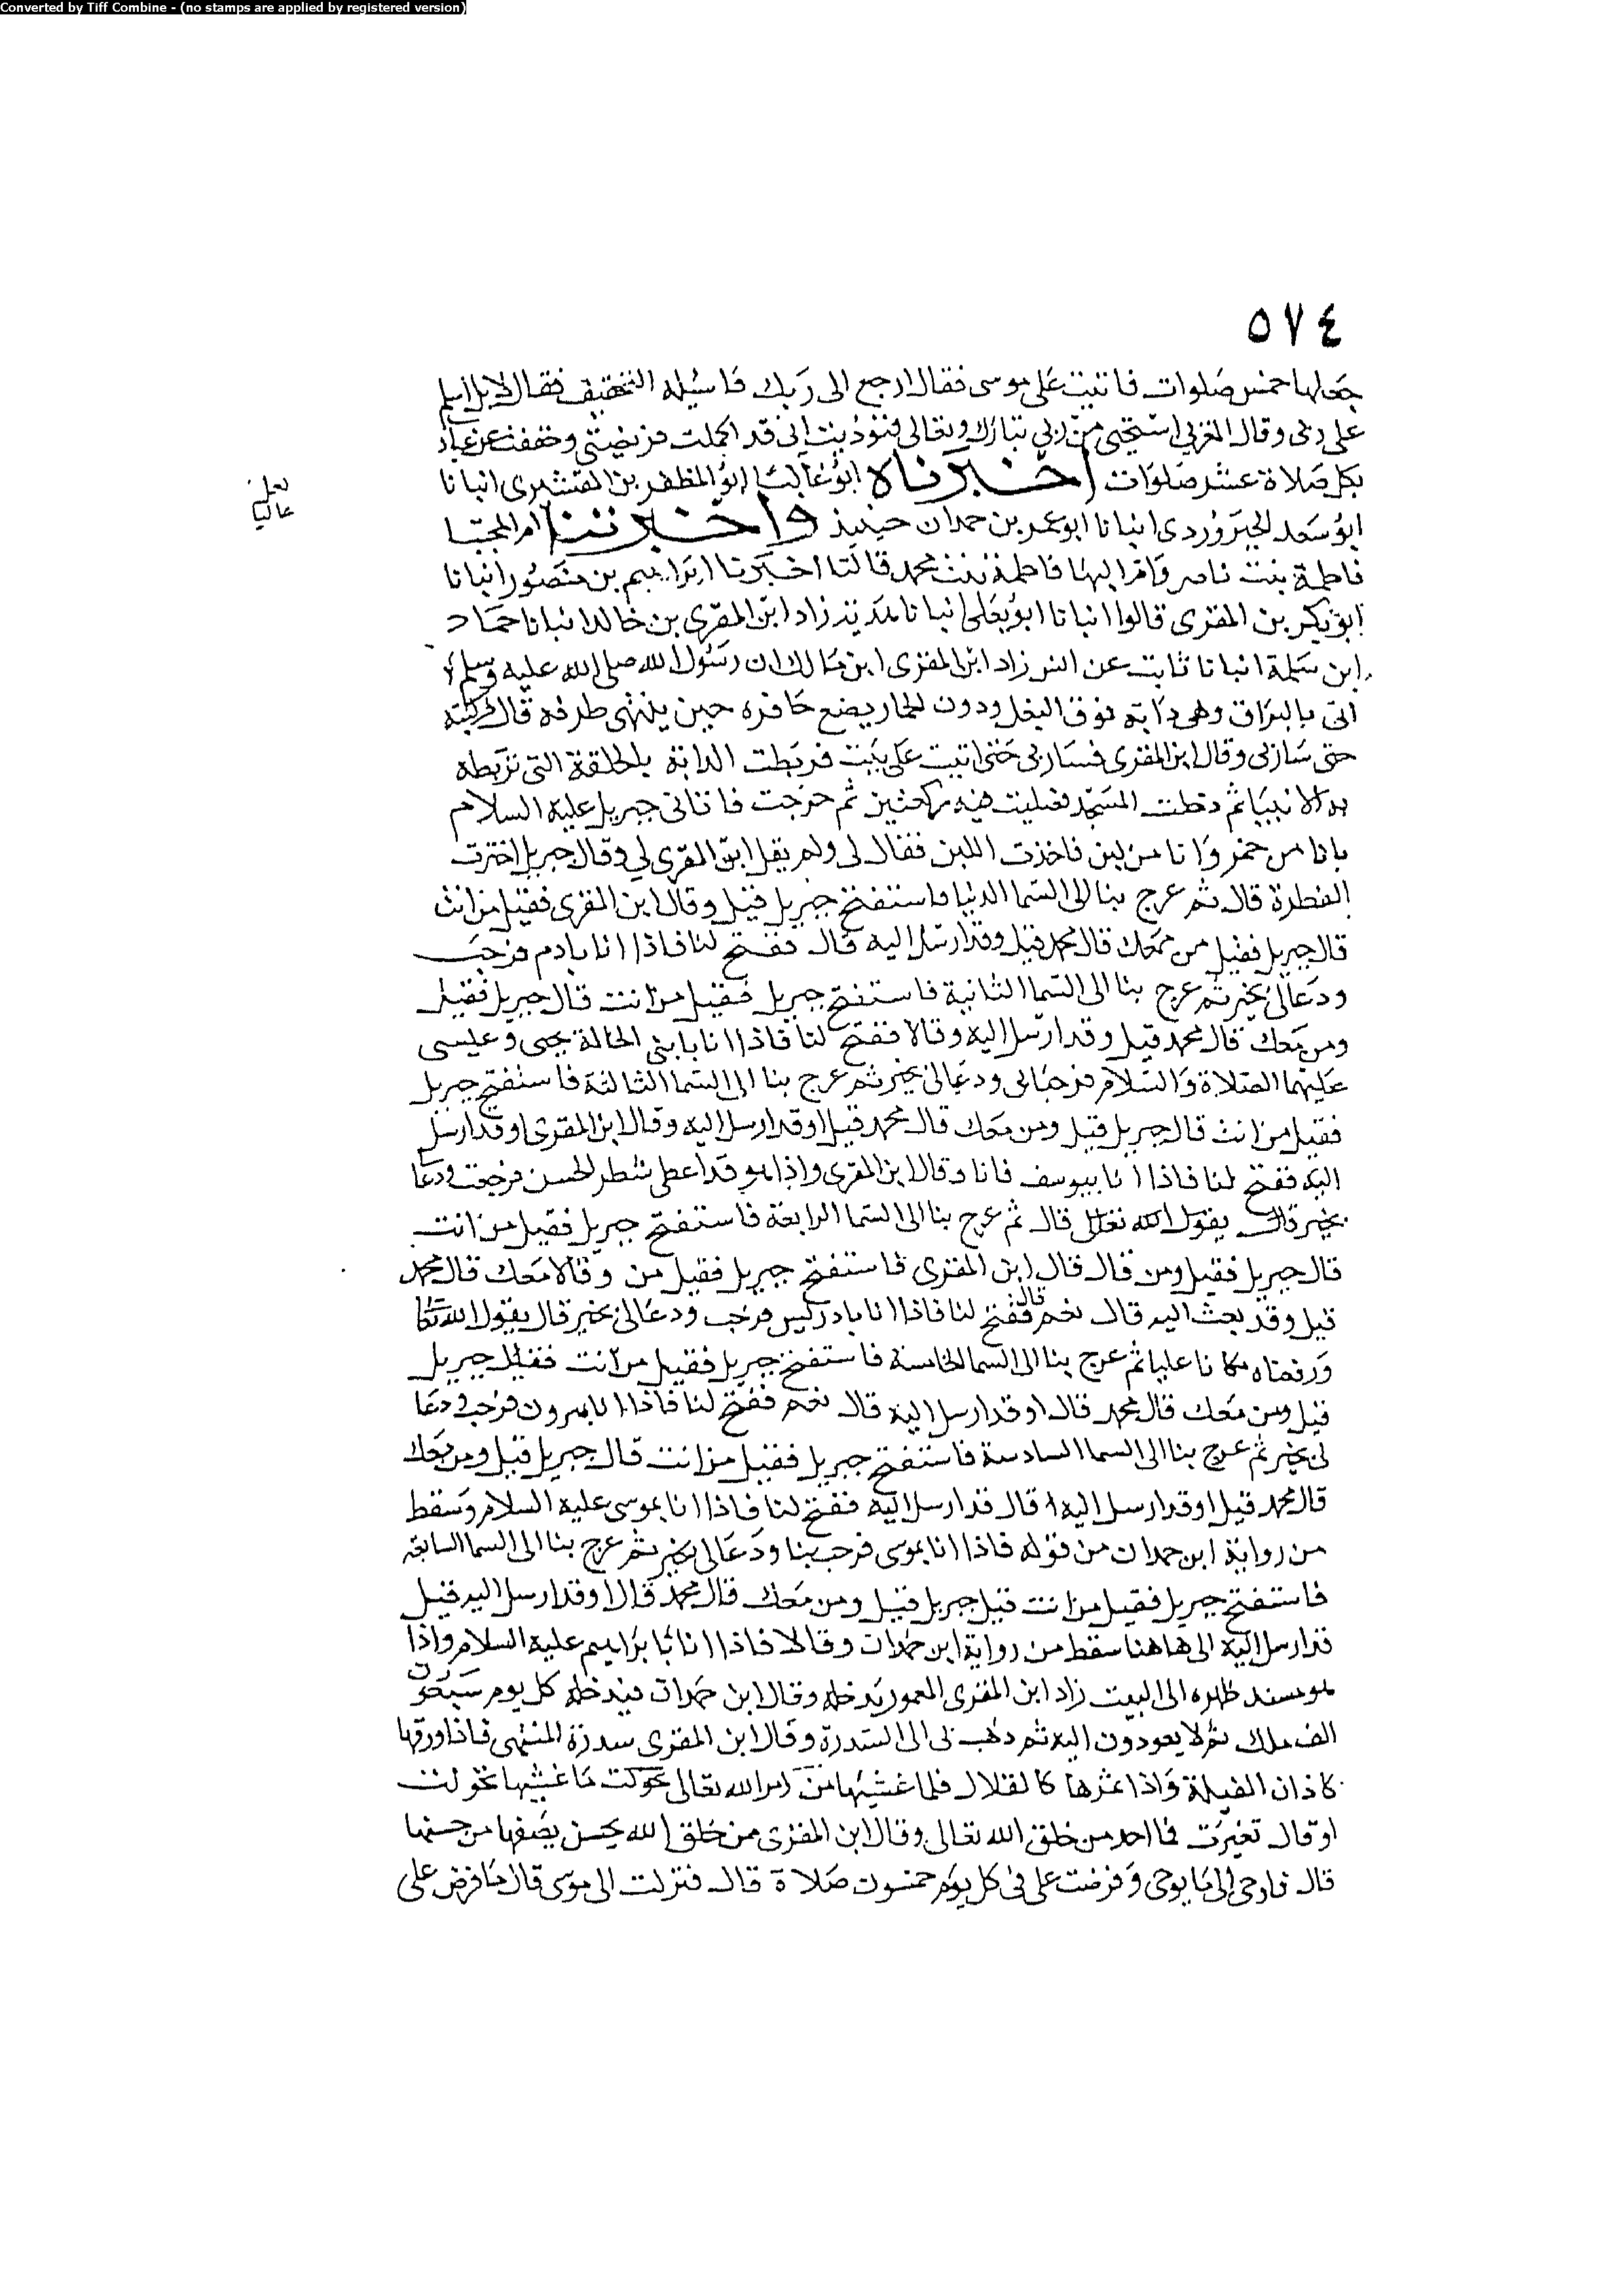 Converted by Tiff Combine - (no stamps are applied by registered version)
٥٧٤
جعلها خمس صلوات فاتيت على موسى فقال ارجع الى ربك فاسئله التخفيف فقال لا بل اسلم
على ربى وقال الغربى استحيى من ربى تبارك وتعالى فنوديت انى قد اكملت فريضتى وخففت عن عبادى
بكل صلاة عشر صلوات اخبرناه ابو غالب ابو المظفر بن القشيرى انبانا
لعل
عاليا
ابو سعد الجنزرودى انبانا ابو عمر بن حمدان حينيذ واخبرتنا ام المجتبا
فاطمة بنت ناصر وام البها فاطمة بنت محمد قالتا اخبرنا ابراهيم بن منصور انبانا
ابو بكر بن المقرى قالوا انبانا ابو يعلى انبانا هدبة زاد ابن المقرى بن خالد انبانا حماد
ابن سلمة انبانا ثابت عن انس زاد ابن المقرى ابن مالك ان رسول الله صلى الله عليه وسلم
اتى بالبراق وهى دابة فوق البغل ودون الحمار يضع حافره حين ينتهى طرفه قال فركبته
حتى سار بى وقال ابن المقرى فسار بى حتى اتيت على بيت فربطت الدابة بالحلقة التى تربطه
به الانبيا ثم دخلت المسجد فصليت فيه ركعتين ثم خرجت فاتانى جبريل عليه السلام
بانا من خمر وانا من لبن فاخذت اللبن فقال لى ولم يقل ابن المقرى لى وقال جبريل اخترت
الفطرة قال ثم عرج بنا الى السما الدنيا فاستفتح جبريل فقيل وقال ابن المقرى فقيل من انت
قال جبريل فقيل من معك قال محمد قيل وقد ارسل اليه قال ففتح لنا فاذا انا بادم فرحب
ودعا لى بخير ثم عرج بنا الى السما الثانية فاستفتح جبريل فقيل من انت قال جبريل فقيل
ومن معك قال محمد قيل وقد ارسل اليه وقالا ففتح لنا فاذا انا بابنى الخالة يحيى وعيسى
عليهما الصلاة والسلام فرحبا بى ودعا لى بخير ثم عرج بنا الى السما الثالثة فاستفتح جبريل
فقيل من انت قال جبريل قيل ومن معك قال محمد قيل اوقد ارسل اليه وقال ابن المقرى اوقد ارسل
اليه ففتح لنا فاذا انا بيوسف فانا وقال ابن المقرى واذا هو قد اعطى شطر الحسن فرحب ودعا
بخير قال يقول الله تعالى قال ثم عرج بنا الى السما الرابعة فاستفتح جبريل فقيل من انت
قال جبريل فقيل ومن قال قال ابن المقرى فاستفتح جبريل فقيل من وقالا معك قال محمد
قيل وقد بعث اليه قال نعم قال ففتح لنا فاذا انا بادريس فرحب ودعا لى بخير قال يقول الله تعالى
ورفعناه مكانا عليا ثم عرج بنا الى السما الخامسة فاستفتح جبريل فقيل من انت فقال جبريل
قيل ومن معك قال محمد قال اوقد ارسل اليه قال نعم ففتح لنا فاذا انا بهرون فرحب ودعا
لى بخير ثم عرج بنا الى السما السادسة فاستفتح جبريل فقيل من انت قال جبريل قيل ومن معك
قال محمد قيل اوقد ارسل اليه قال قد ارسل اليه ففتح لنا فاذا انا بموسى عليه السلام وسقط
من رواية ابن حمدان من قوله فاذا انا بموسى فرحب بنا ودعا لى بخير ثم عرج بنا الى السما السابعة
فاستفتح جبريل فقيل من انت قيل جبريل قيل ومن معك قال محمد قالا اوقد ارسل اليه قيل
قد ارسل اليه الى هاهنا سقط من رواية ابن حمدان وقالا فاذا انا بابراهيم عليه السلام واذا
هو مسند ظهره الى البيت زاد ابن المقرى المعمور يدخله وقال ابن حمدان فيدخله كل يوم سبعون
الف ملك ثم لا يعودون اليه ثم ذهب بى الى السدرة وقال ابن المقرى سدرة المنتهى فاذا ورقها
كاذان الفيلة واذا ثمرها كالقلال فلما غشيها من امر الله تعالى تحولت ما غشيها تحولت
او قال تغيرت فما احد من خلق الله تعالى وقال ابن المقرى ممن خلق الله يحسن يصفها من حسنها
قال فاوحى الى ما يوحى وفرضت على فى كل يوم خمسون صلاة قال فنزلت الى موسى قال ما فرض على